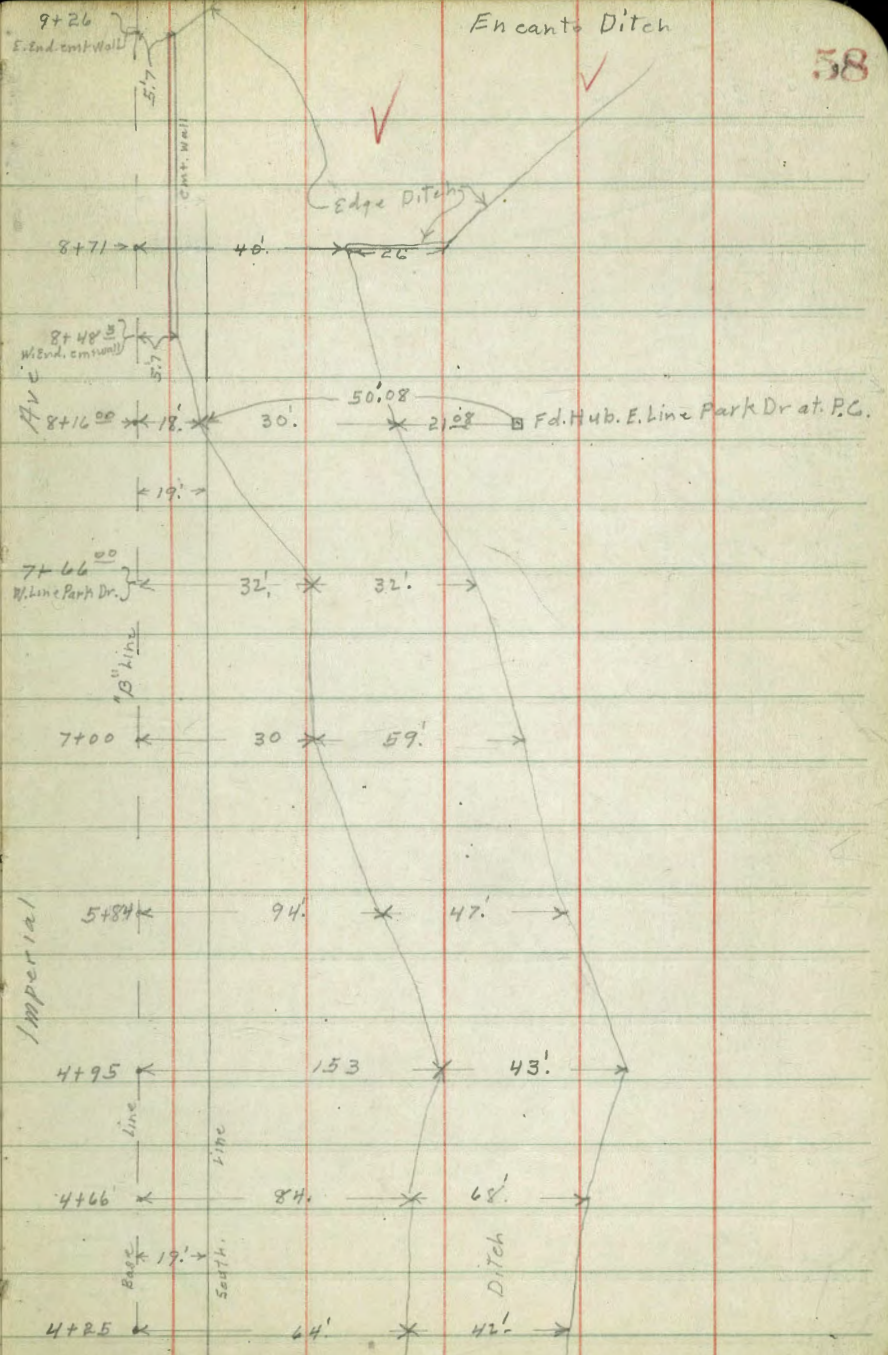 Encanto Ditch
58
9+26
E. End. cmt Wall
5.'7
cmt. wall
Edge Ditch
8+71 40'. 26
8+48 3
W. End. cmt wall
5.'7
50.'08
8+16 00 18'. 30'. 21.08 Fd. Hub. E. Line Park Dr at. P.C.
19.'
7+66 00 32'. 32'.
W. Line Park Dr.
"B" Line
7+00 30 59'.
5+84 94'. 47.'
Imperial Ave
4+95 153 43'.
4+66 84. 68'.
19.'
Base Line
South. Line
Ditch
4+25 64' 42'.